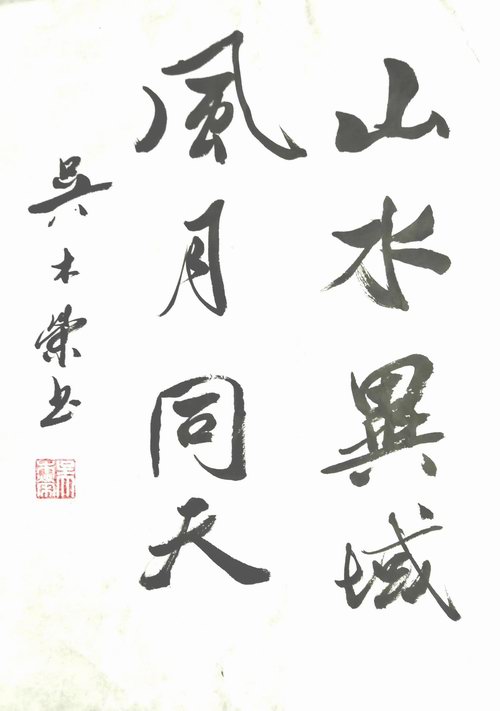 山水異域
風月同天
吳木榮书